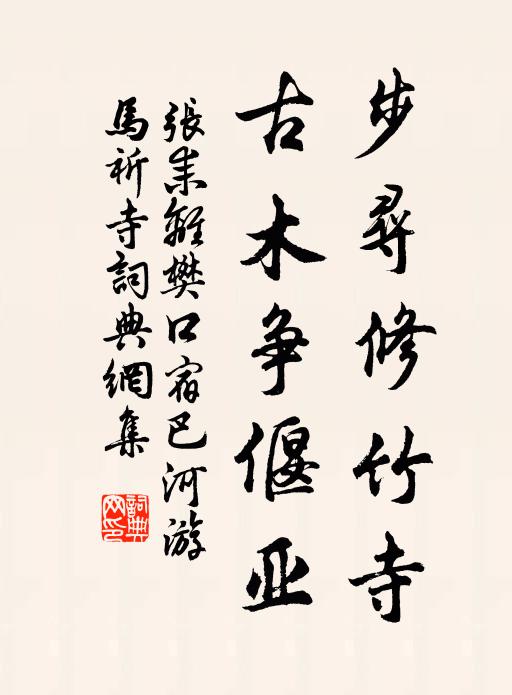 步尋修竹寺
古木争偃亚
張耒離樊口宿巴河游
馬祈寺詞典網集
詞典
网印